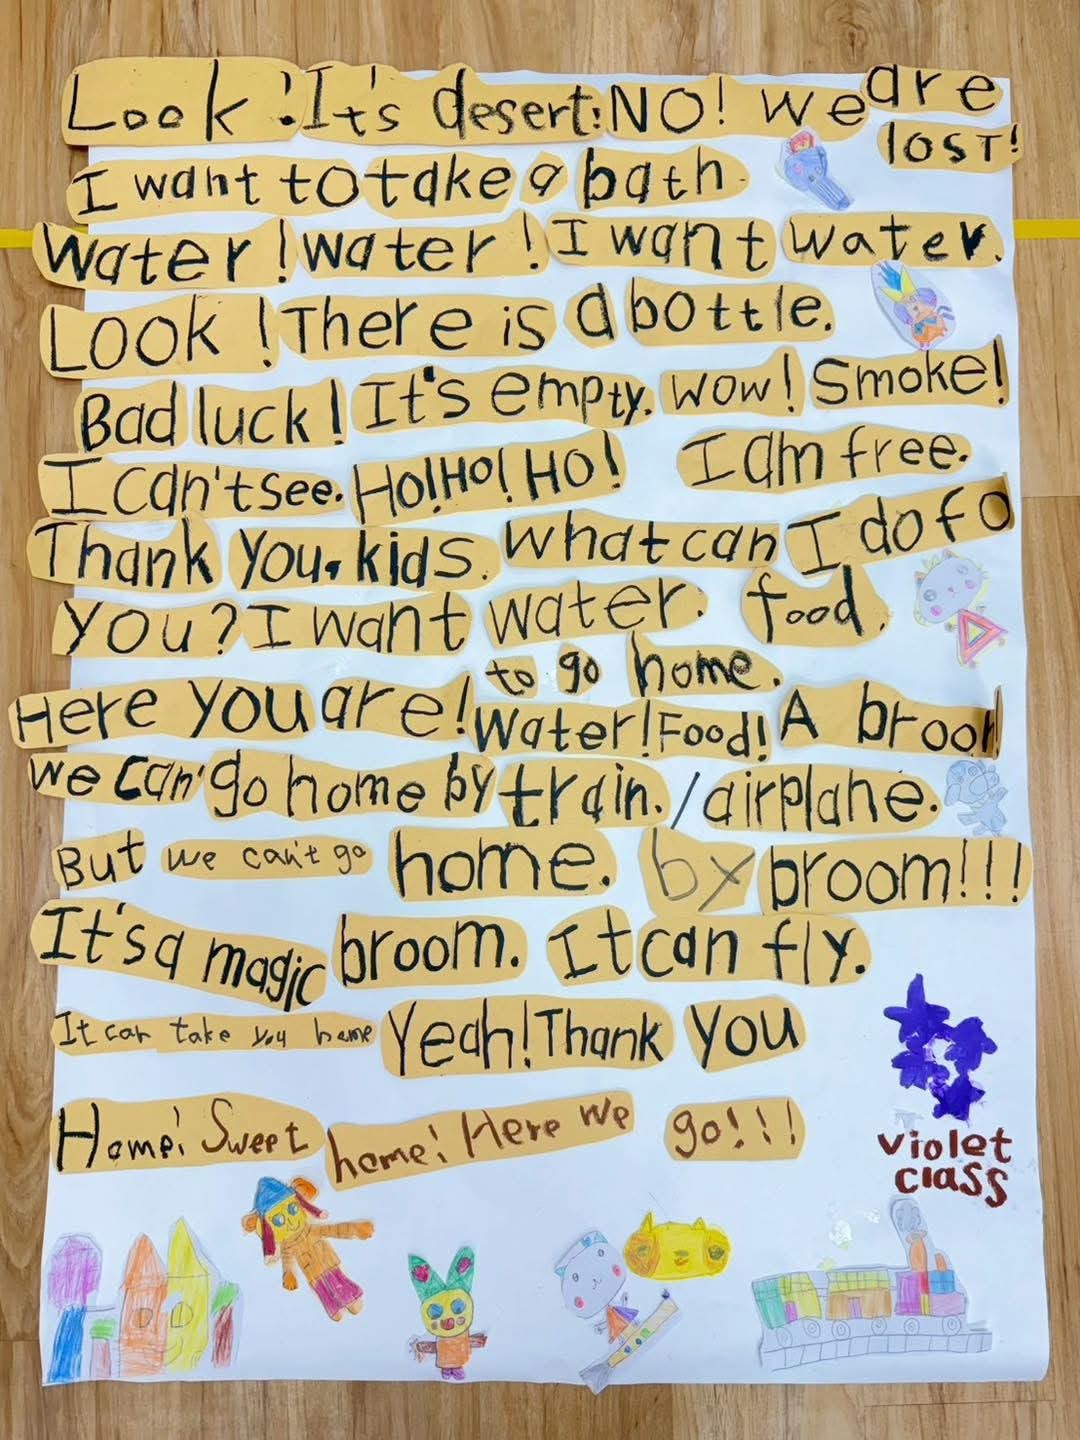 Look! It's desert! NO! We are
lost!
I want to take a bath
Water! Water! I want water.
Look! There is a bottle.
Bad luck! It's empty. Wow! Smoke!
I can't see. Ho! Ho! Ho! I am free.
Thank you. kids. What can I do fo
you? I want water. food.
to go home.
Here you are! Water! Food! A broo
we can' go home by train. / airplane.
But we can't go home. by broom!!!
It's a magic broom. It can fly.
It can take you home Yeah! Thank you
Home! Sweet home! Here we go!!!
violet
class